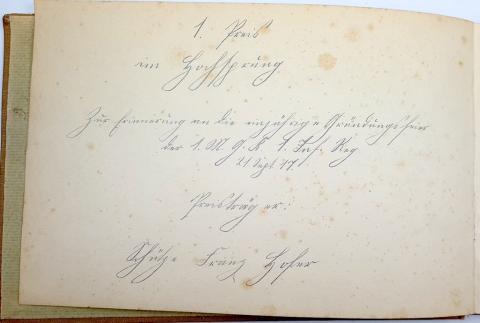 1. Preis
im Hochsprung
Zur Erinnerung an die einjährige Gründungsfeier
der 1. M. G. K. 1. Inf. Reg.
21 Sept. 17.
Preisträger:
Schütze Franz Hofer